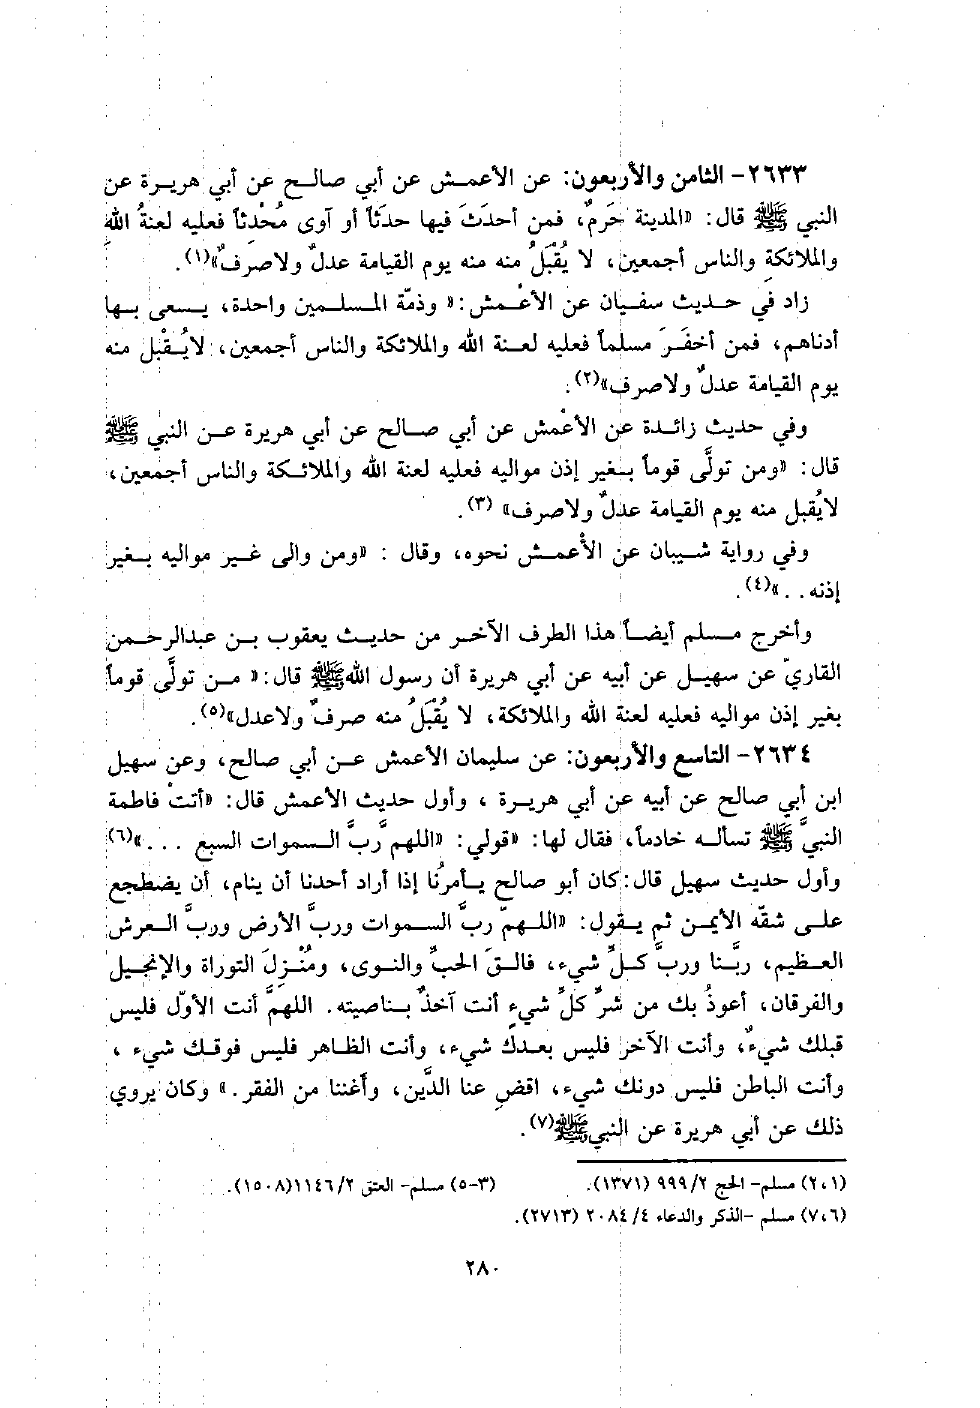 ٢٦٣٣- الثامن والأربعون: عن الأعمـش عن أبي صالـح عن أبي هريـرة عن
النبي ﷺ قال: «المدينة حَرَمٌ، فمن أحدَثَ فيها حدَثاً أو آوى مُحْدثاً فعليه لعنةُ اللهِ
والملائكةِ والناس أجمعين، لا يُقْبَلُ منه منه يوم القيامة عدلٌ ولاصَرفٌ»(١).
زاد في حـديث سفـيان عن الأعْمش: « وذمّة المـسلمين واحدة، يـسعى بـها
أدناهم، فمن أخفَـرَ مسلماً فعليه لعـنة الله والملائكة والناس أجمعين، لايُـقْبل منه
يوم القيامة عدلٌ ولاصرف»(٢).
وفي حديث زائـدة عن الأعْمش عن أبي صـالح عن أبي هريرة عـن النبي ﷺ
قال: «ومن تولَّى قوماً بـغير إذن مواليه فعليه لعنة الله والملائـكة والناس أجمعين،
لايُقبل منه يوم القيامة عدلٌ ولاصرف» (٣).
وفي رواية شـيبان عن الأعمـش نحوه، وقال : «ومن والى غـير مواليه بـغير
إذنه. .»(٤).
وأخرج مـسلم أيضـاً هذا الطرف الآخـر من حديـث يعقوب بـن عبدالرحـمن
القاريّ عن سهيـل عن أبيه عن أبي هريرة أن رسول اللهﷺ قال: « مـن تولَّى قوماً
بغير إذن مواليه فعليه لعنة الله والملائكة، لا يُقْبَلُ منه صرفٌ ولاعدل»(٥).
٢٦٣٤- التاسع والأربعون: عن سليمان الأعمش عـن أبي صالح، وعن سهيل
ابن أبي صالح عن أبيه عن أبي هريـرة ، وأول حديث الأعمش قال: «أتتْ فاطمة
النبيَّ ﷺ تسألـه خادماً، فقال لها: «قولي: «اللهمّ ربَّ الـسموات السبع . . .»(٦)
وأول حديث سهيل قال: كان أبو صالح يـأمرُنا إذا أراد أحدنا أن ينام، أن يضطجع
علـى شقّه الأيمـن ثم يـقول: «اللـهمّ ربَّ الـسموات وربَّ الأرض وربَّ الـعرش
العـظيم، ربَّـنا وربَّ كـلِّ شيء، فالـقَ الحبِّ والنـوى، ومُنْـزِلَ التوراة والإنجـيل
والفرقان، أعوذُ بك من شرِّ كلِّ شيءٍ أنت آخذٌ بـناصيته. اللهمَّ أنت الأوّل فليس
قبلك شيءٌ، وأنت الآخر فليس بعدك شيء، وأنت الظـاهر فليس فوقـك شيء ،
وأنت الباطن فليس دونك شيء، اقضِ عنا الدَّين، وأغننا من الفقر.» وكان يروي
ذلك عن أبي هريرة عن النبيﷺ(٧).
(٢،١) مسلم- الحج ٢/ ٩٩٩ (١٣٧١). (٣-٥) مسلم- العتق ٢/ ١١٤٦(١٥٠٨).
(٧،٦) مسلم -الذكر والدعاء ٤/ ٢٠٨٤ (٢٧١٣).
٢٨٠